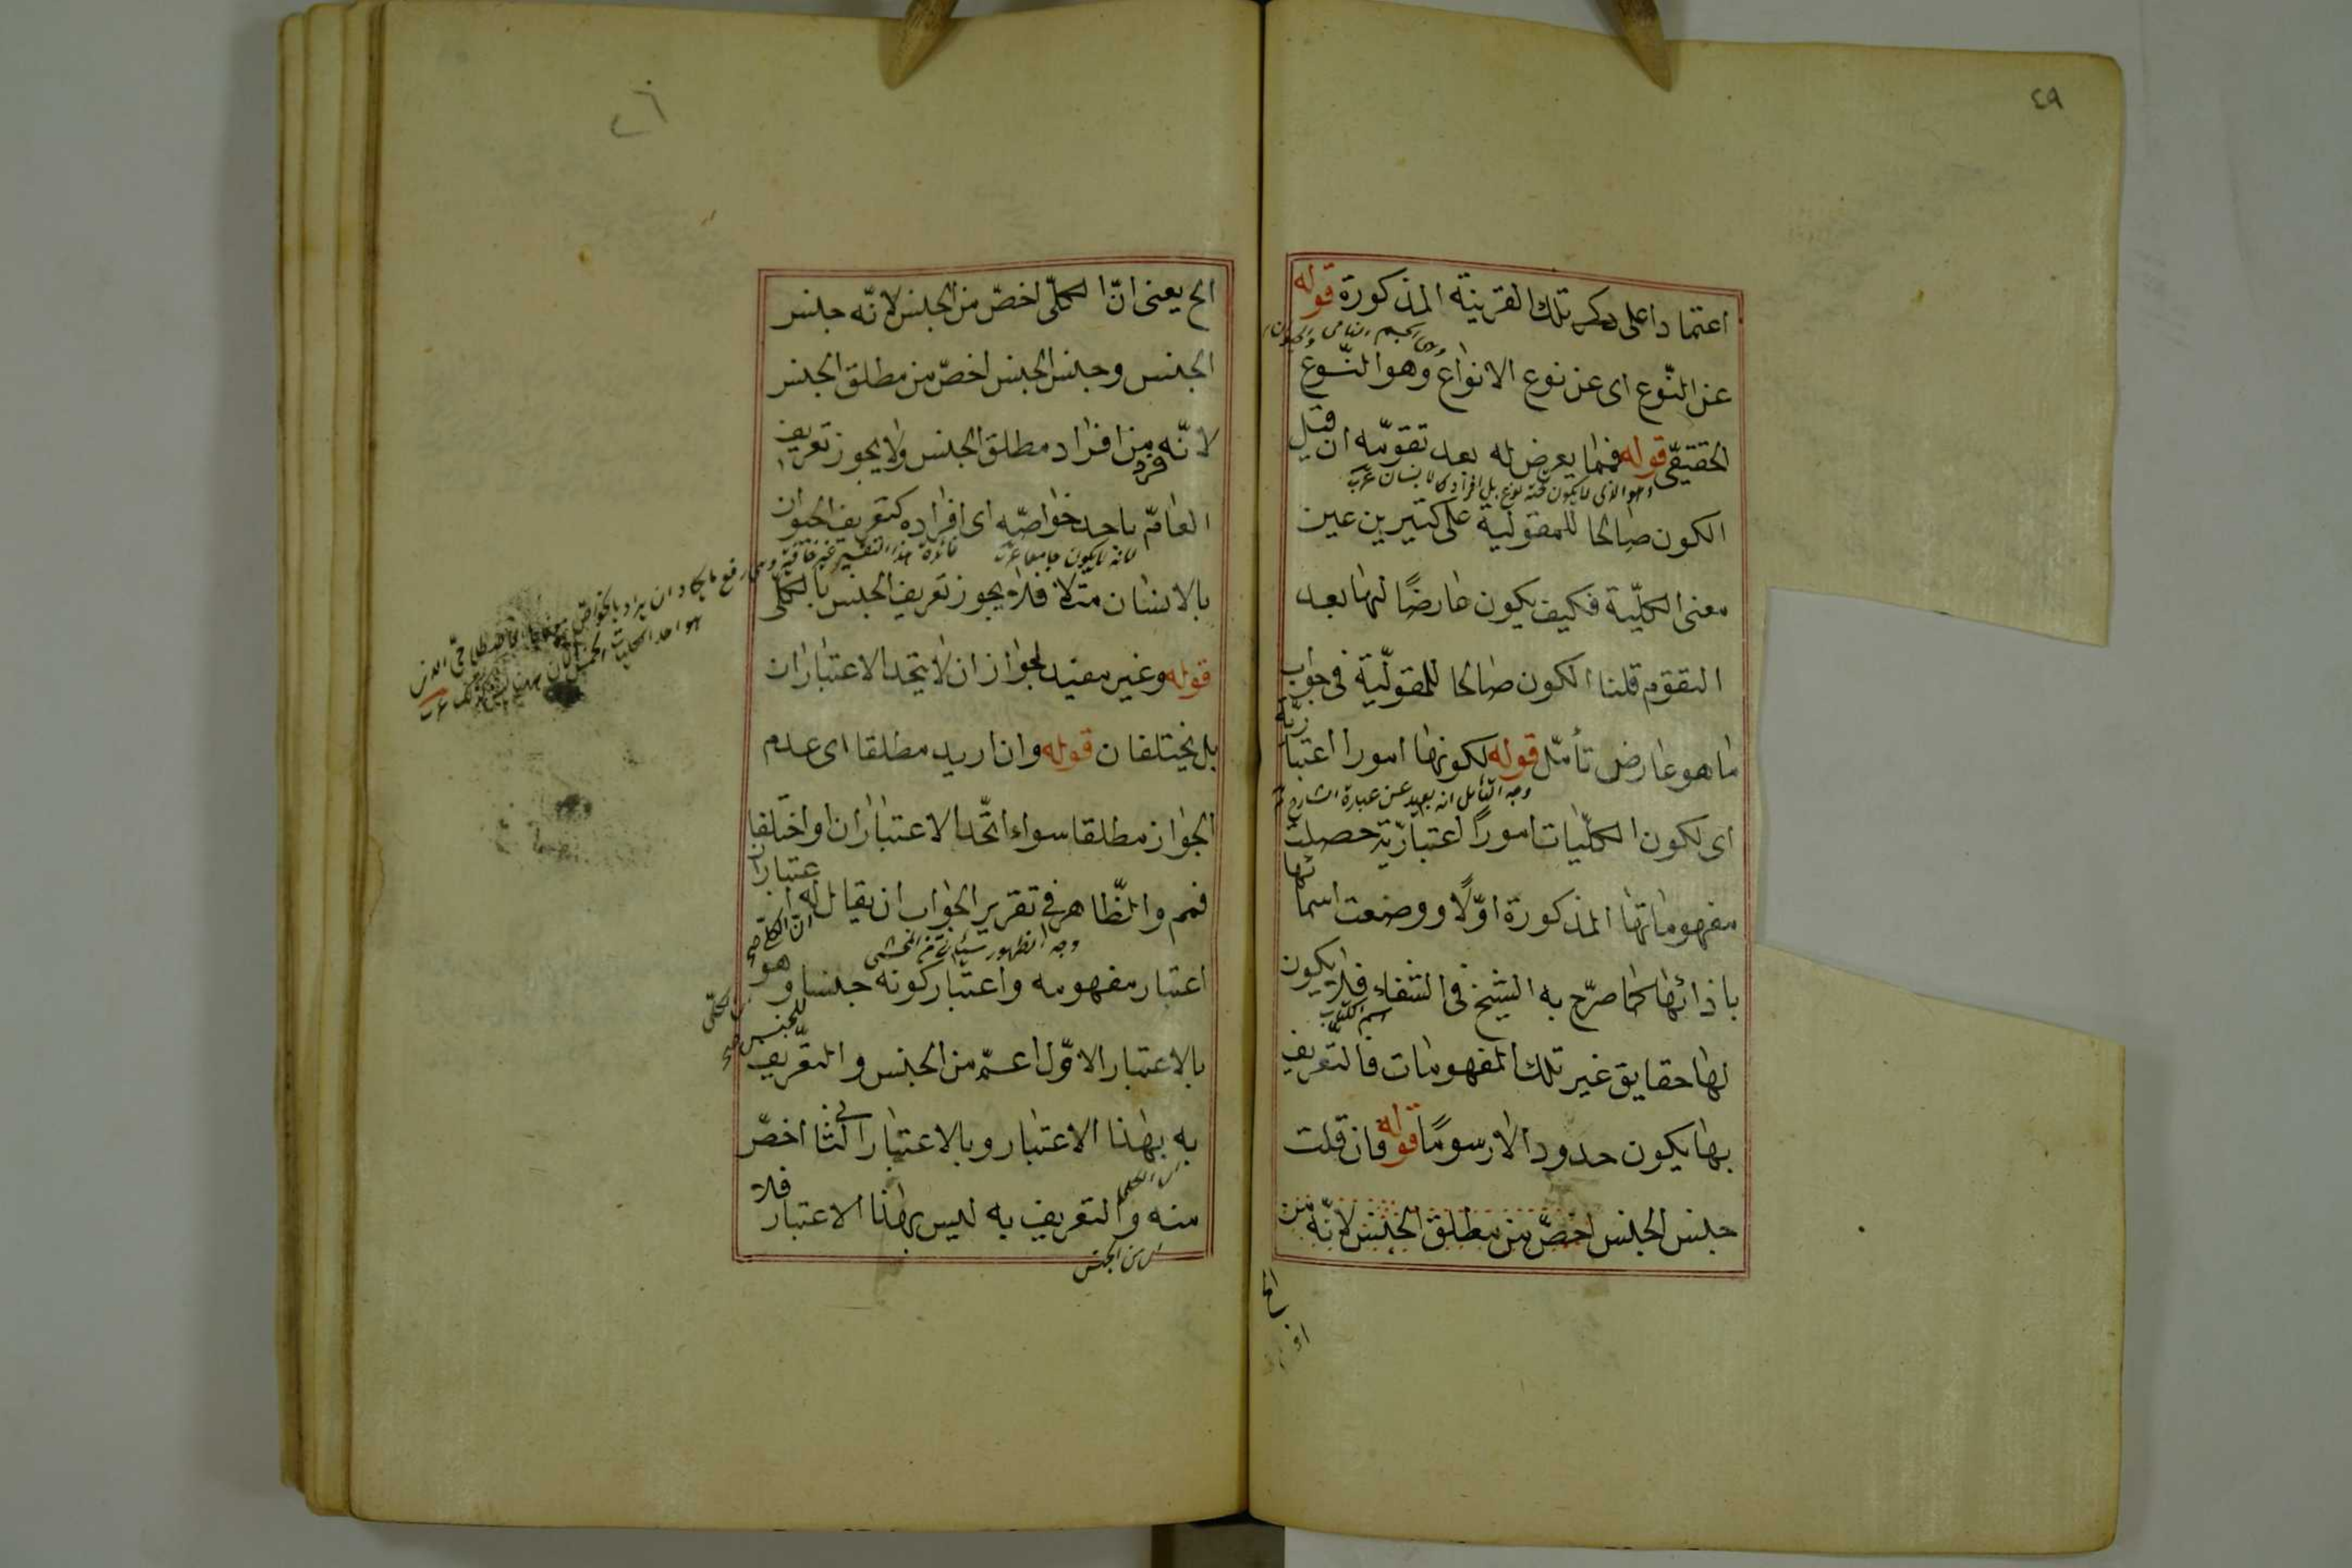 ٤٩
اعتمادا على ذكر تلك القرينة المذكورة قوله
عن النّوع اى عن نوع الانواع وهو النّوع
الحقيقىّ قوله فيما يعرض له بعد تقوّمه ان قيل
الكون صالحا للمقولية على كثيرين عين
معنى الكلّيّة فكيف يكون عارضًا لها بعد
التقوّم قلنا الكون صالحا للمقوليّة فى جواب
ما هو عارض تأمّل قوله لكونها امورا اعتباريّة
وجه التأمل انه بعيد عن عبارة الشارح
اى لكون الكلّيات امورًا اعتباريّة حصلت
مفهوماتها المذكورة اوّلًا ووضعت اسمائها
بازائها كما صرّح به الشيخ فى الشفاء فلا يكون
اسم الكتاب
لها حقايق غير تلك المفهومات فالتّعريف
بها يكون حدودا لا رسومًا قوله فان قلت
جنس الجنس اخصّ من مطلق الجنس لانّه من
الخ يعنى انّ الكلّى اخصّ من الجنس لانّه جنس
الجنس وجنس الجنس اخصّ من مطلق الجنس
لانّه فرد من افراد مطلق الجنس ولا يجوز تعريف
العامّ باحد خواصّه اى افراده كتعريف الحيوان
لانه لا يكون جامعا
بالانسان مثلا فلا يجوز تعريف الجنس بالكلّى
قوله وغير مفيد لجواز ان لا يتّحد الاعتباران
بل يختلفان قوله وان اريد مطلقا اى عدم
الجواز مطلقا سواء اتّحد الاعتباران او اختلفا
فمم والظّاهر فى تقرير الجواب ان يقال له اعتباران
وجه الظهور سيأتى من المحشى
اعتبار مفهومه واعتبار كونه جنسا وهو
للجنس
بالاعتبار الاوّل اعمّ من الجنس والتعّريف
به بهذا الاعتبار وبالاعتبار الثانى اخصّ
منه والتعريف به ليس بهذا الاعتبار فلا
اى من الجنس